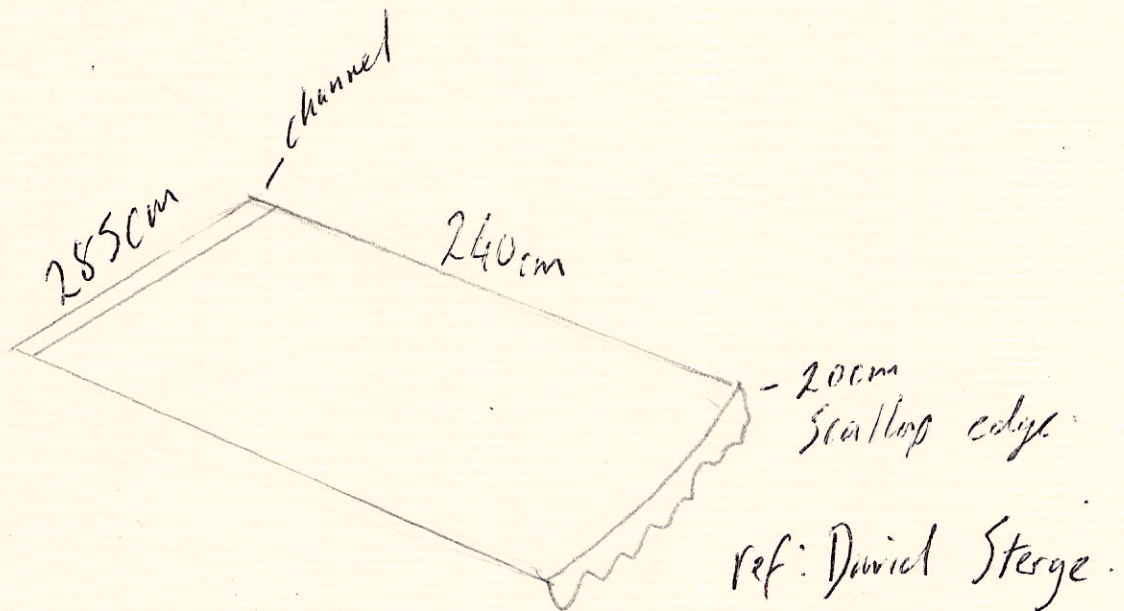 channel
285cm
240cm
- 20cm
Scallop edge
ref: David Sterge.